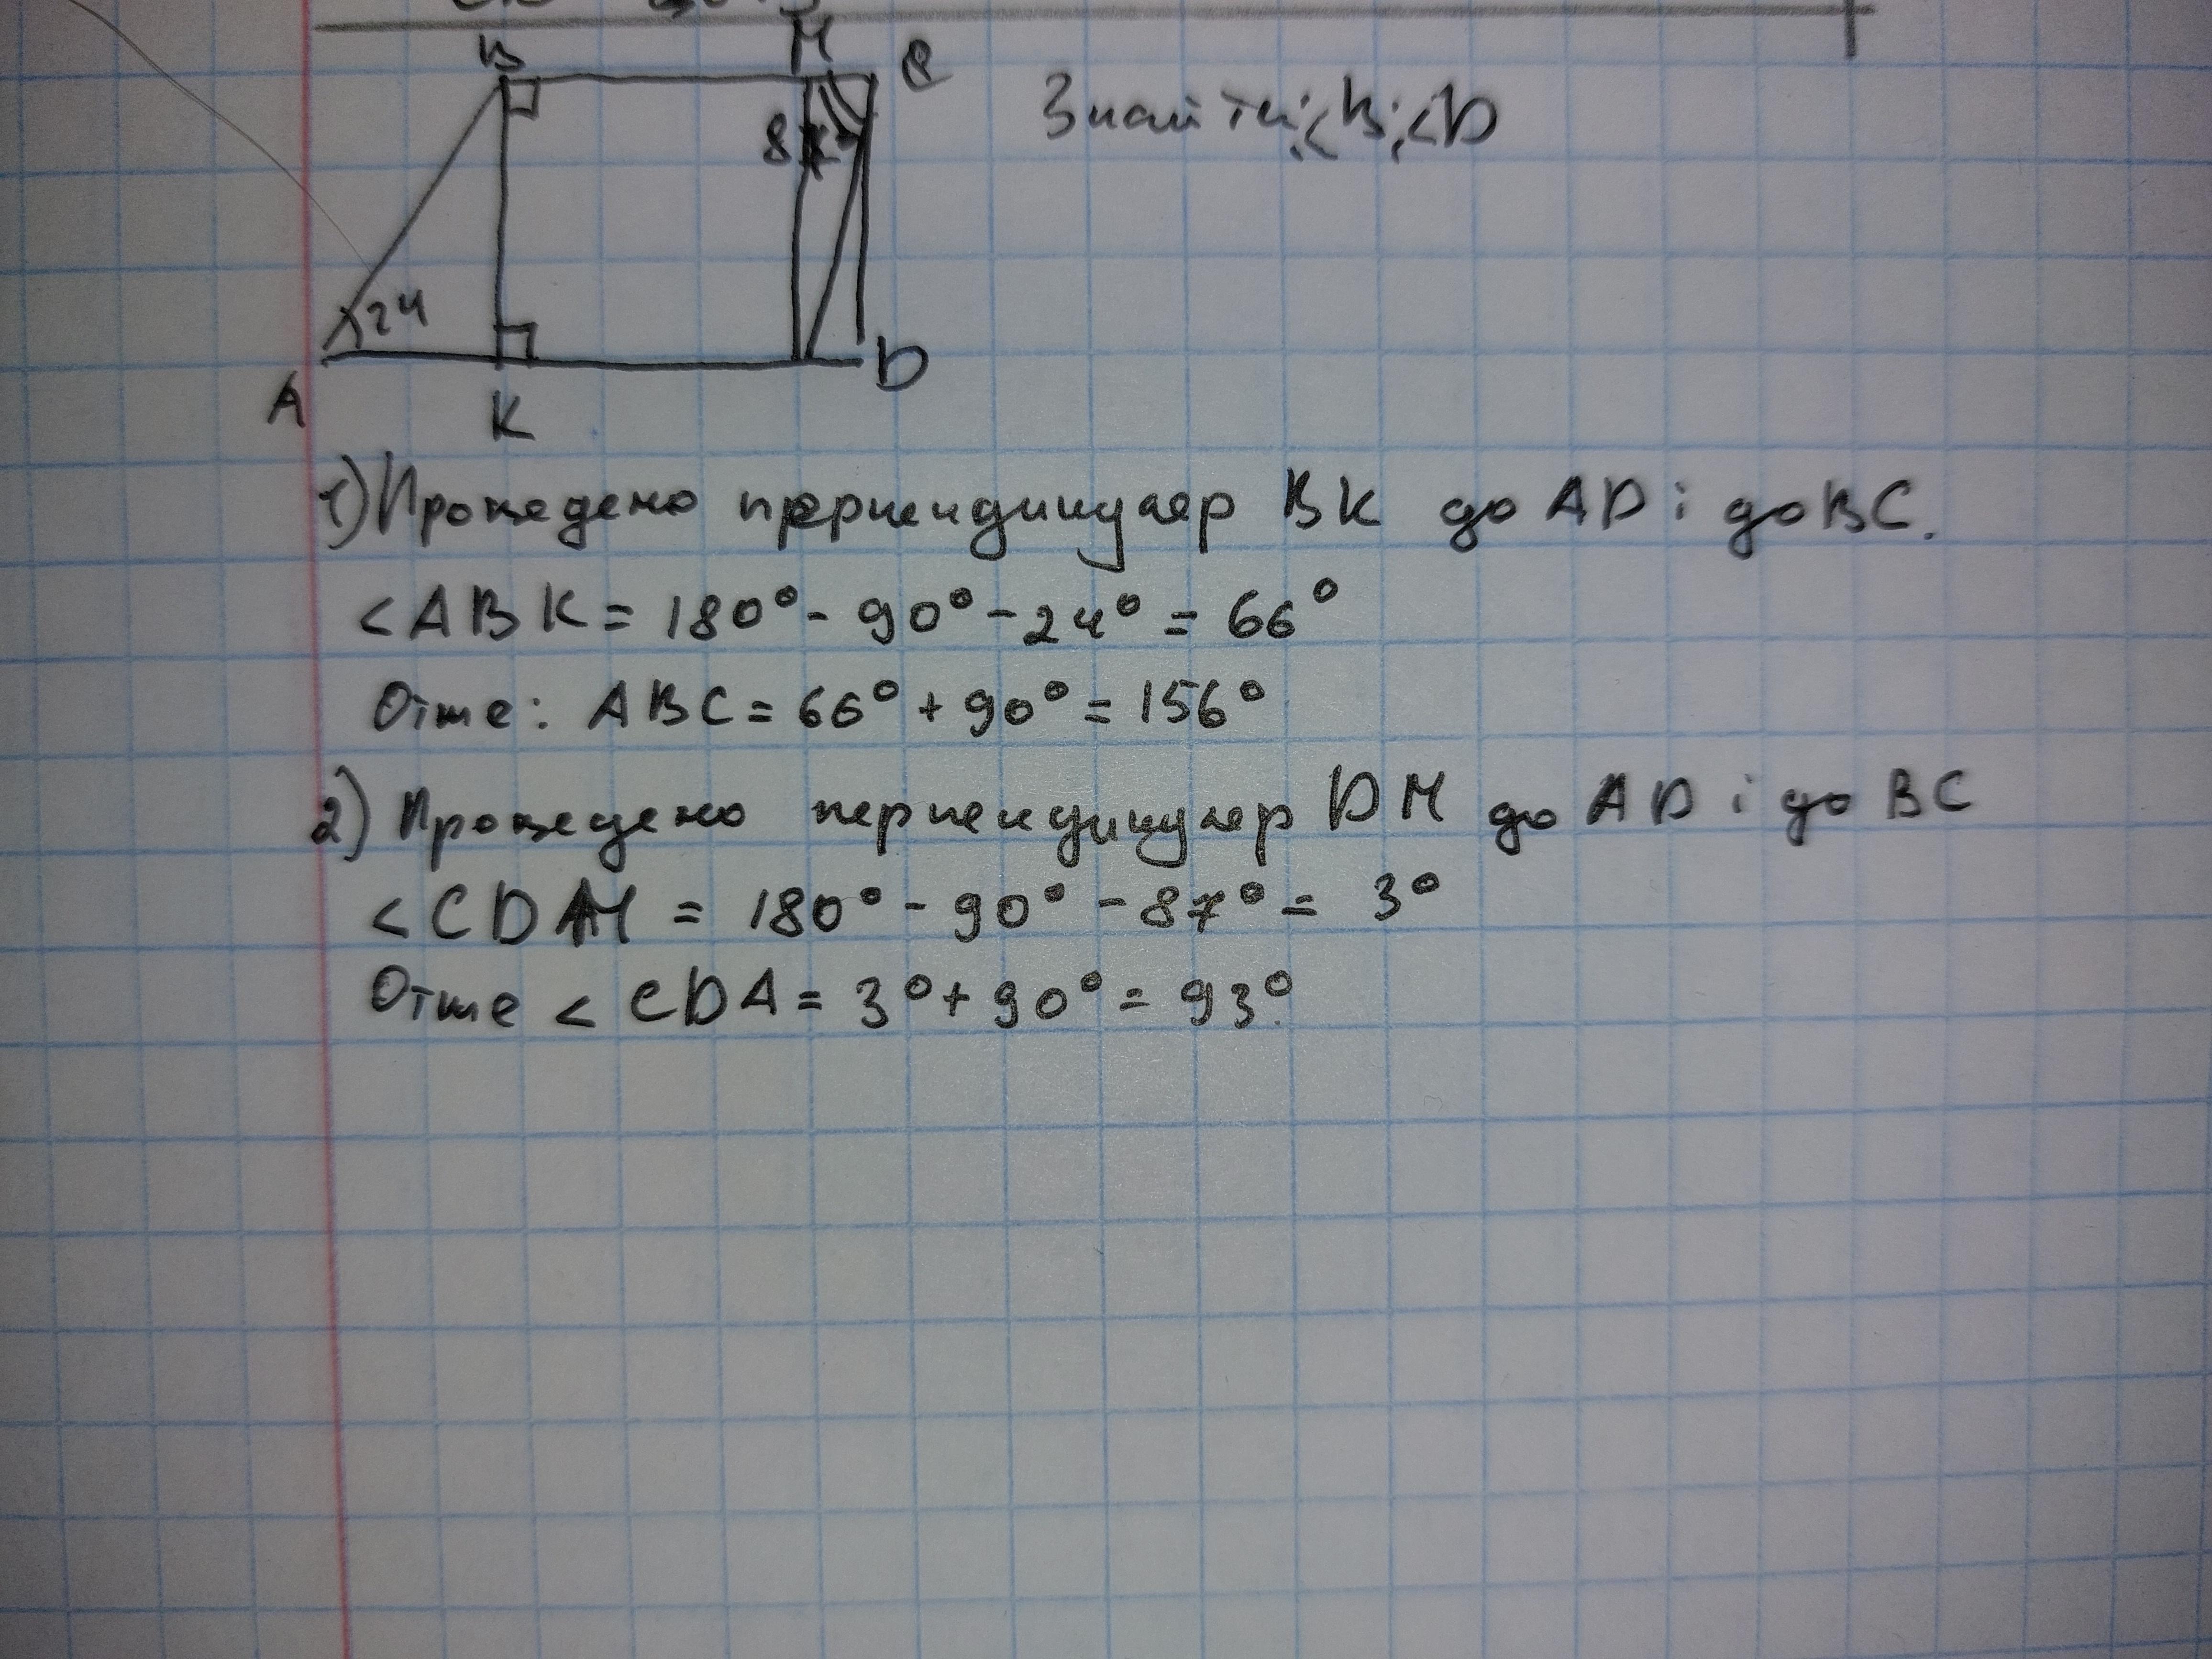 B M C
Знайти: <B; <D
87°
24
A K D
1) Проведемо перпендикуляр BK до AD і до BC.
<ABK = 180° - 90° - 24° = 66°
Отже: ABC = 66° + 90° = 156°
2) Проведемо перпендикуляр DM до AD і до BC
<CDM = 180° - 90° - 87° = 3°
Отже < CDA = 3° + 90° = 93°.